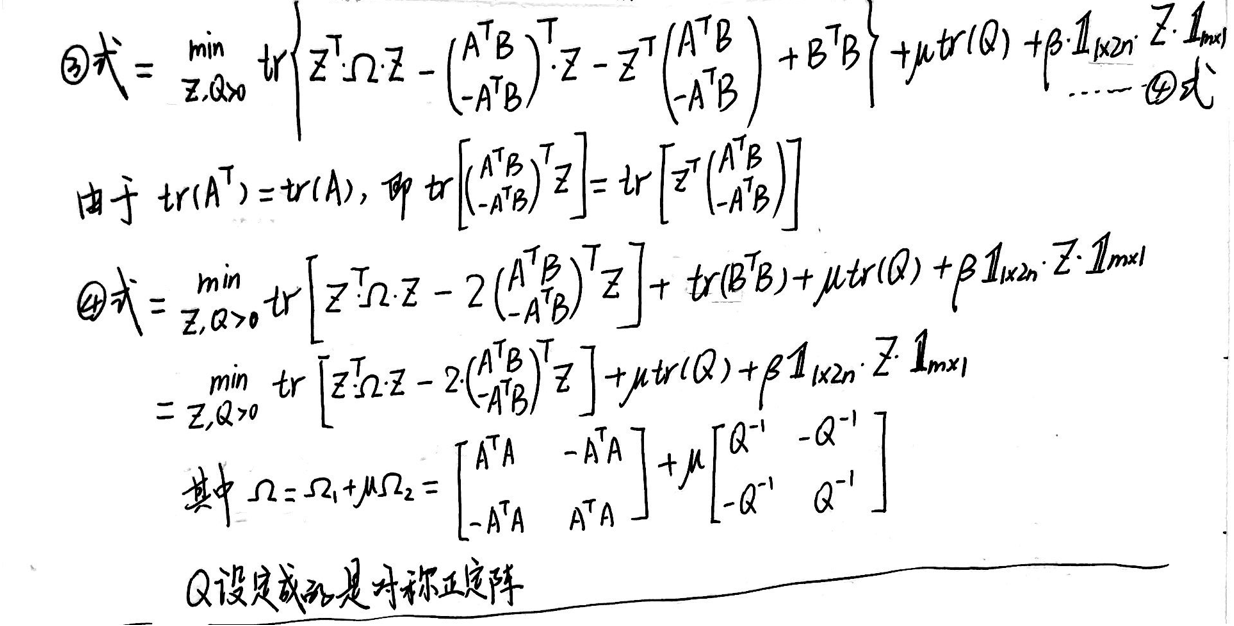 ③式 = min_{Z,Q>0} tr{ Z^T·Ω·Z − (A^TB; −A^TB)^T·Z − Z^T (A^TB; −A^TB) + B^TB } + μtr(Q) + β·𝟙_{1×2n}·Z·𝟙_{m×1}
…… ④式
由于 tr(A^T) = tr(A), 即 tr[(A^TB; −A^TB)^T Z] = tr[Z^T (A^TB; −A^TB)]
④式 = min_{Z,Q>0} tr[ Z^T·Ω·Z − 2 (A^TB; −A^TB)^T Z ] + tr(B^TB) + μtr(Q) + β𝟙_{1×2n}·Z·𝟙_{m×1}
= min_{Z,Q>0} tr[ Z^T·Ω·Z − 2·(A^TB; −A^TB)^T Z ] + μtr(Q) + β𝟙_{1×2n}·Z·𝟙_{m×1}
其中 Ω = Ω₁ + μΩ₂ = [A^TA −A^TA; −A^TA A^TA] + μ[Q^{-1} −Q^{-1}; −Q^{-1} Q^{-1}]
Q设定成的是对称正定阵